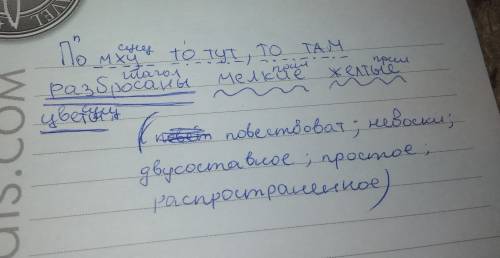 п сущ
По мху то тут, то там
глагол прил прил
разбросаны мелкие желтые
сущ
цветы (повествоват; невоскл;
двусоставное; простое;
распространенное)